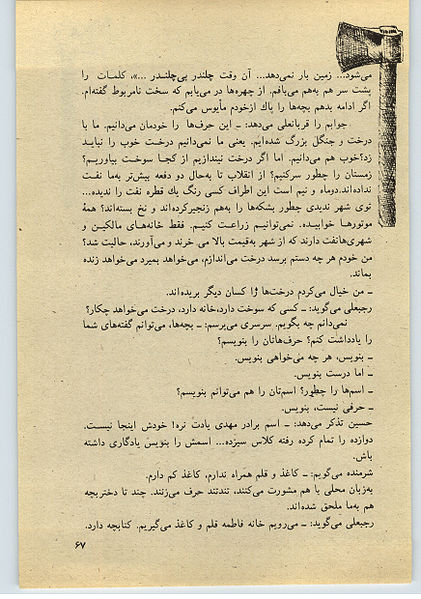 می‌شود... زمین بار نمی‌دهد... آن وقت چلندر بی‌چلندر ...»، کلمات را
پشت سر هم به‌هم می‌بافم. از چهره‌ها در می‌یابم که سخت نامربوط گفته‌ام.
اگر ادامه بدهم بچه‌ها را پاك ازخودم مأیوس می‌کنم.
جوابم را قربانعلی می‌دهد: ــ این حرف‌ها را خودمان می‌دانیم. ما با
درخت و جنگل بزرگ شده‌ایم. یعنی ما نمی‌دانیم درخت خوب را نباید
زد؟خوب هم می‌دانیم. اما اگر درخت نیندازیم از کجا سوخت بیاوریم؟
زمستان را چطور سرکنیم؟ از انقلاب تا به‌حال دو دفعه بیش‌تر به‌ما نفت
نداده‌اند.دوماه و نیم است این اطراف کسی رنگ یك قطره نفت را ندیده...
توی شهر ندیدی چطور بشکه‌ها را به‌هم زنجیرکرده‌اند و نخ بسته‌اند؟ همهٔ
موتورها خوابیده. نمی‌توانیم زراعت کنیم. فقط خانه‌های مالکین و
شهری‌هانفت دارند که از شهر به‌قیمت بالا می خرند و می‌آورند، حالیت شد؟
من خودم هر چه دستم برسد درخت می‌اندازم، می‌خواهد بمیرد می‌خواهد زنده
بماند.
ــ من خیال می‌کردم درخت‌ها را کسان دیگر بریده‌اند.
رجبعلی می‌گوید: ــ کسی که سوخت دارد،خانه دارد، درخت می‌خواهد چکار؟
نمی‌دانم چه بگویم. سرسری می‌پرسم: ــ بچه‌ها، می‌توانم گفته‌های شما
را یادداشت کنم؟ حرف‌هاتان را بنویسم؟
ــ بنویس، هر چه می‌خواهی بنویس.
ــ اما درست بنویس.
ــ اسم‌ها را چطور؟ اسم‌تان را هم می‌توانم بنویسم؟
ــ حرفی نیست، بنویس.
حسین تذکر می‌دهد: ــ اسم برادر مهدی یادت نره! خودش اینجا نیست.
دوازده را تمام کرده رفته کلاس سیزده... اسمش را بنویس یادگاری داشته
باش.
شرمنده می‌گویم: ــ کاغذ و قلم همراه ندارم، کاغذ کم دارم.
به‌زبان محلی با هم مشورت می‌کنند، تندتند حرف می‌زنند. چند تا دختربچه
هم به‌ما ملحق شده‌اند.
رجبعلی می‌گوید: ــ می‌رویم خانه فاطمه قلم و کاغذ می‌گیریم. کتابچه دارد.
۶۷